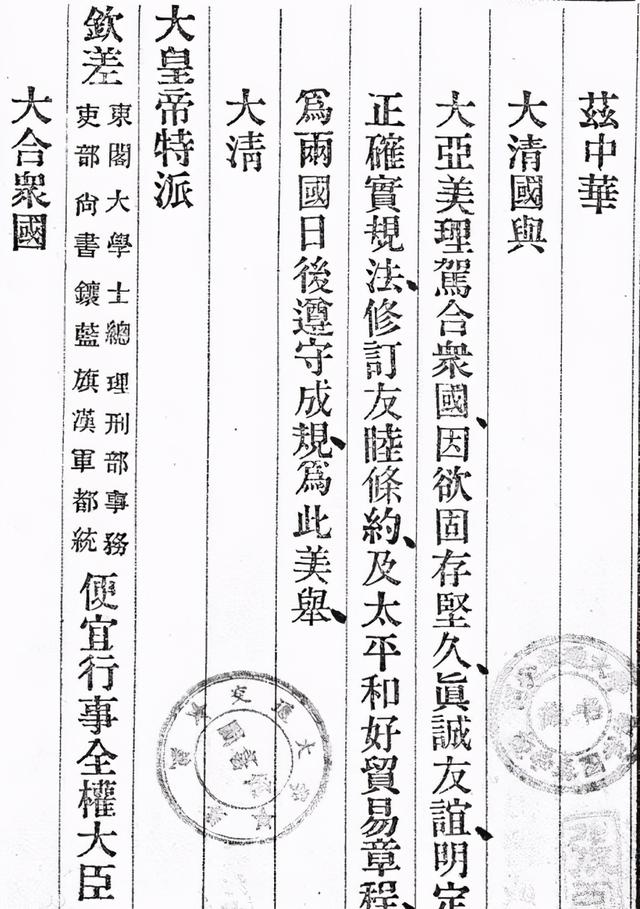 茲中華
大清國與
大亞美理駕合衆國、因欲固存堅久、眞誠友誼、明定
正確實規法、修訂友睦條約、及太平和好貿易章程、
爲兩國日後遵守成規、爲此美舉、
大清
大皇帝特派
欽差
東閣大學士總理刑部事務
吏部尙書鑲藍旗漢軍都統
便宜行事全權大臣
大合衆國